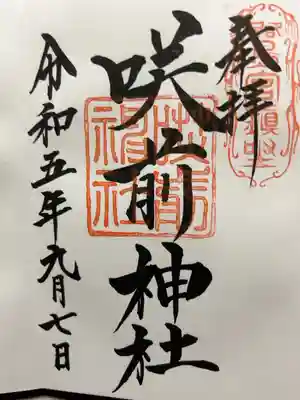 奉拝
咲前神社
令和五年九月七日
咲前神社